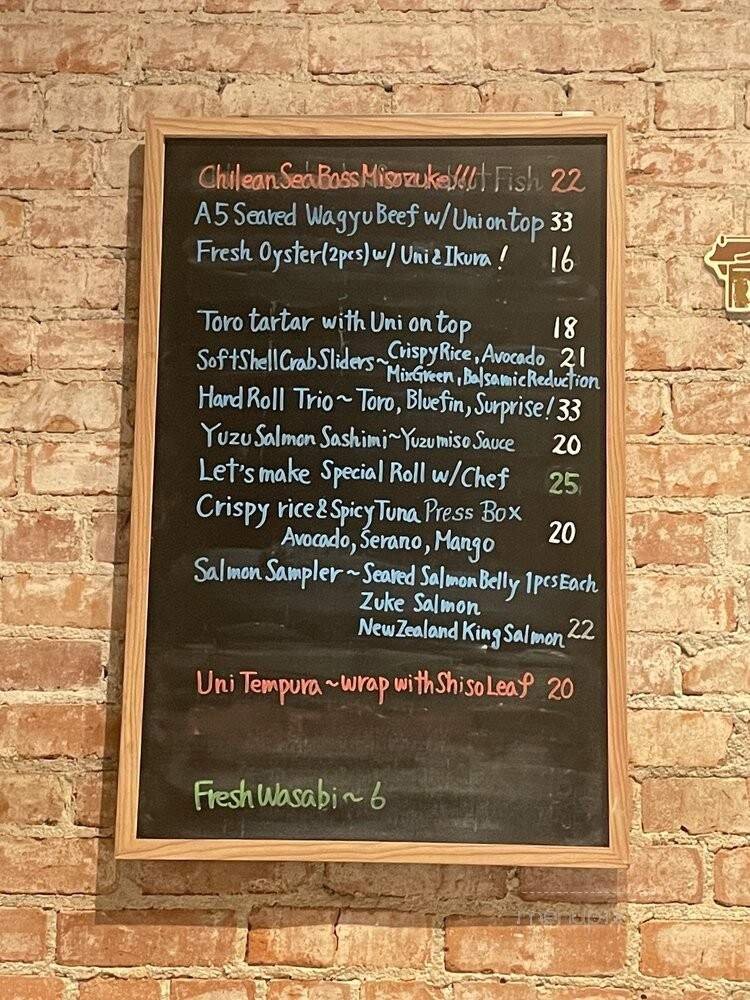 Chilean Sea Bass Misozuke!!! Fish 22
A5 Seared Wagyu Beef w/ Uni on top 33
Fresh Oyster (2pcs) w/ Uni & Ikura ! 16
Toro tartar with Uni on top 18
Soft Shell Crab Sliders ~ Crispy Rice, Avocado 21
Mix Green, Balsamic Reduction
Hand Roll Trio ~ Toro, Bluefin, Surprise! 33
Yuzu Salmon Sashimi ~ Yuzu miso Sauce 20
Let's make Special Roll w/ Chef 25
Crispy rice & Spicy Tuna Press Box
Avocado, Serano, Mango 20
Salmon Sampler ~ Seared Salmon Belly 1pcs Each
Zuke Salmon
New Zealand King Salmon 22
Uni Tempura ~ wrap with Shiso Leaf 20
Fresh Wasabi ~ 6